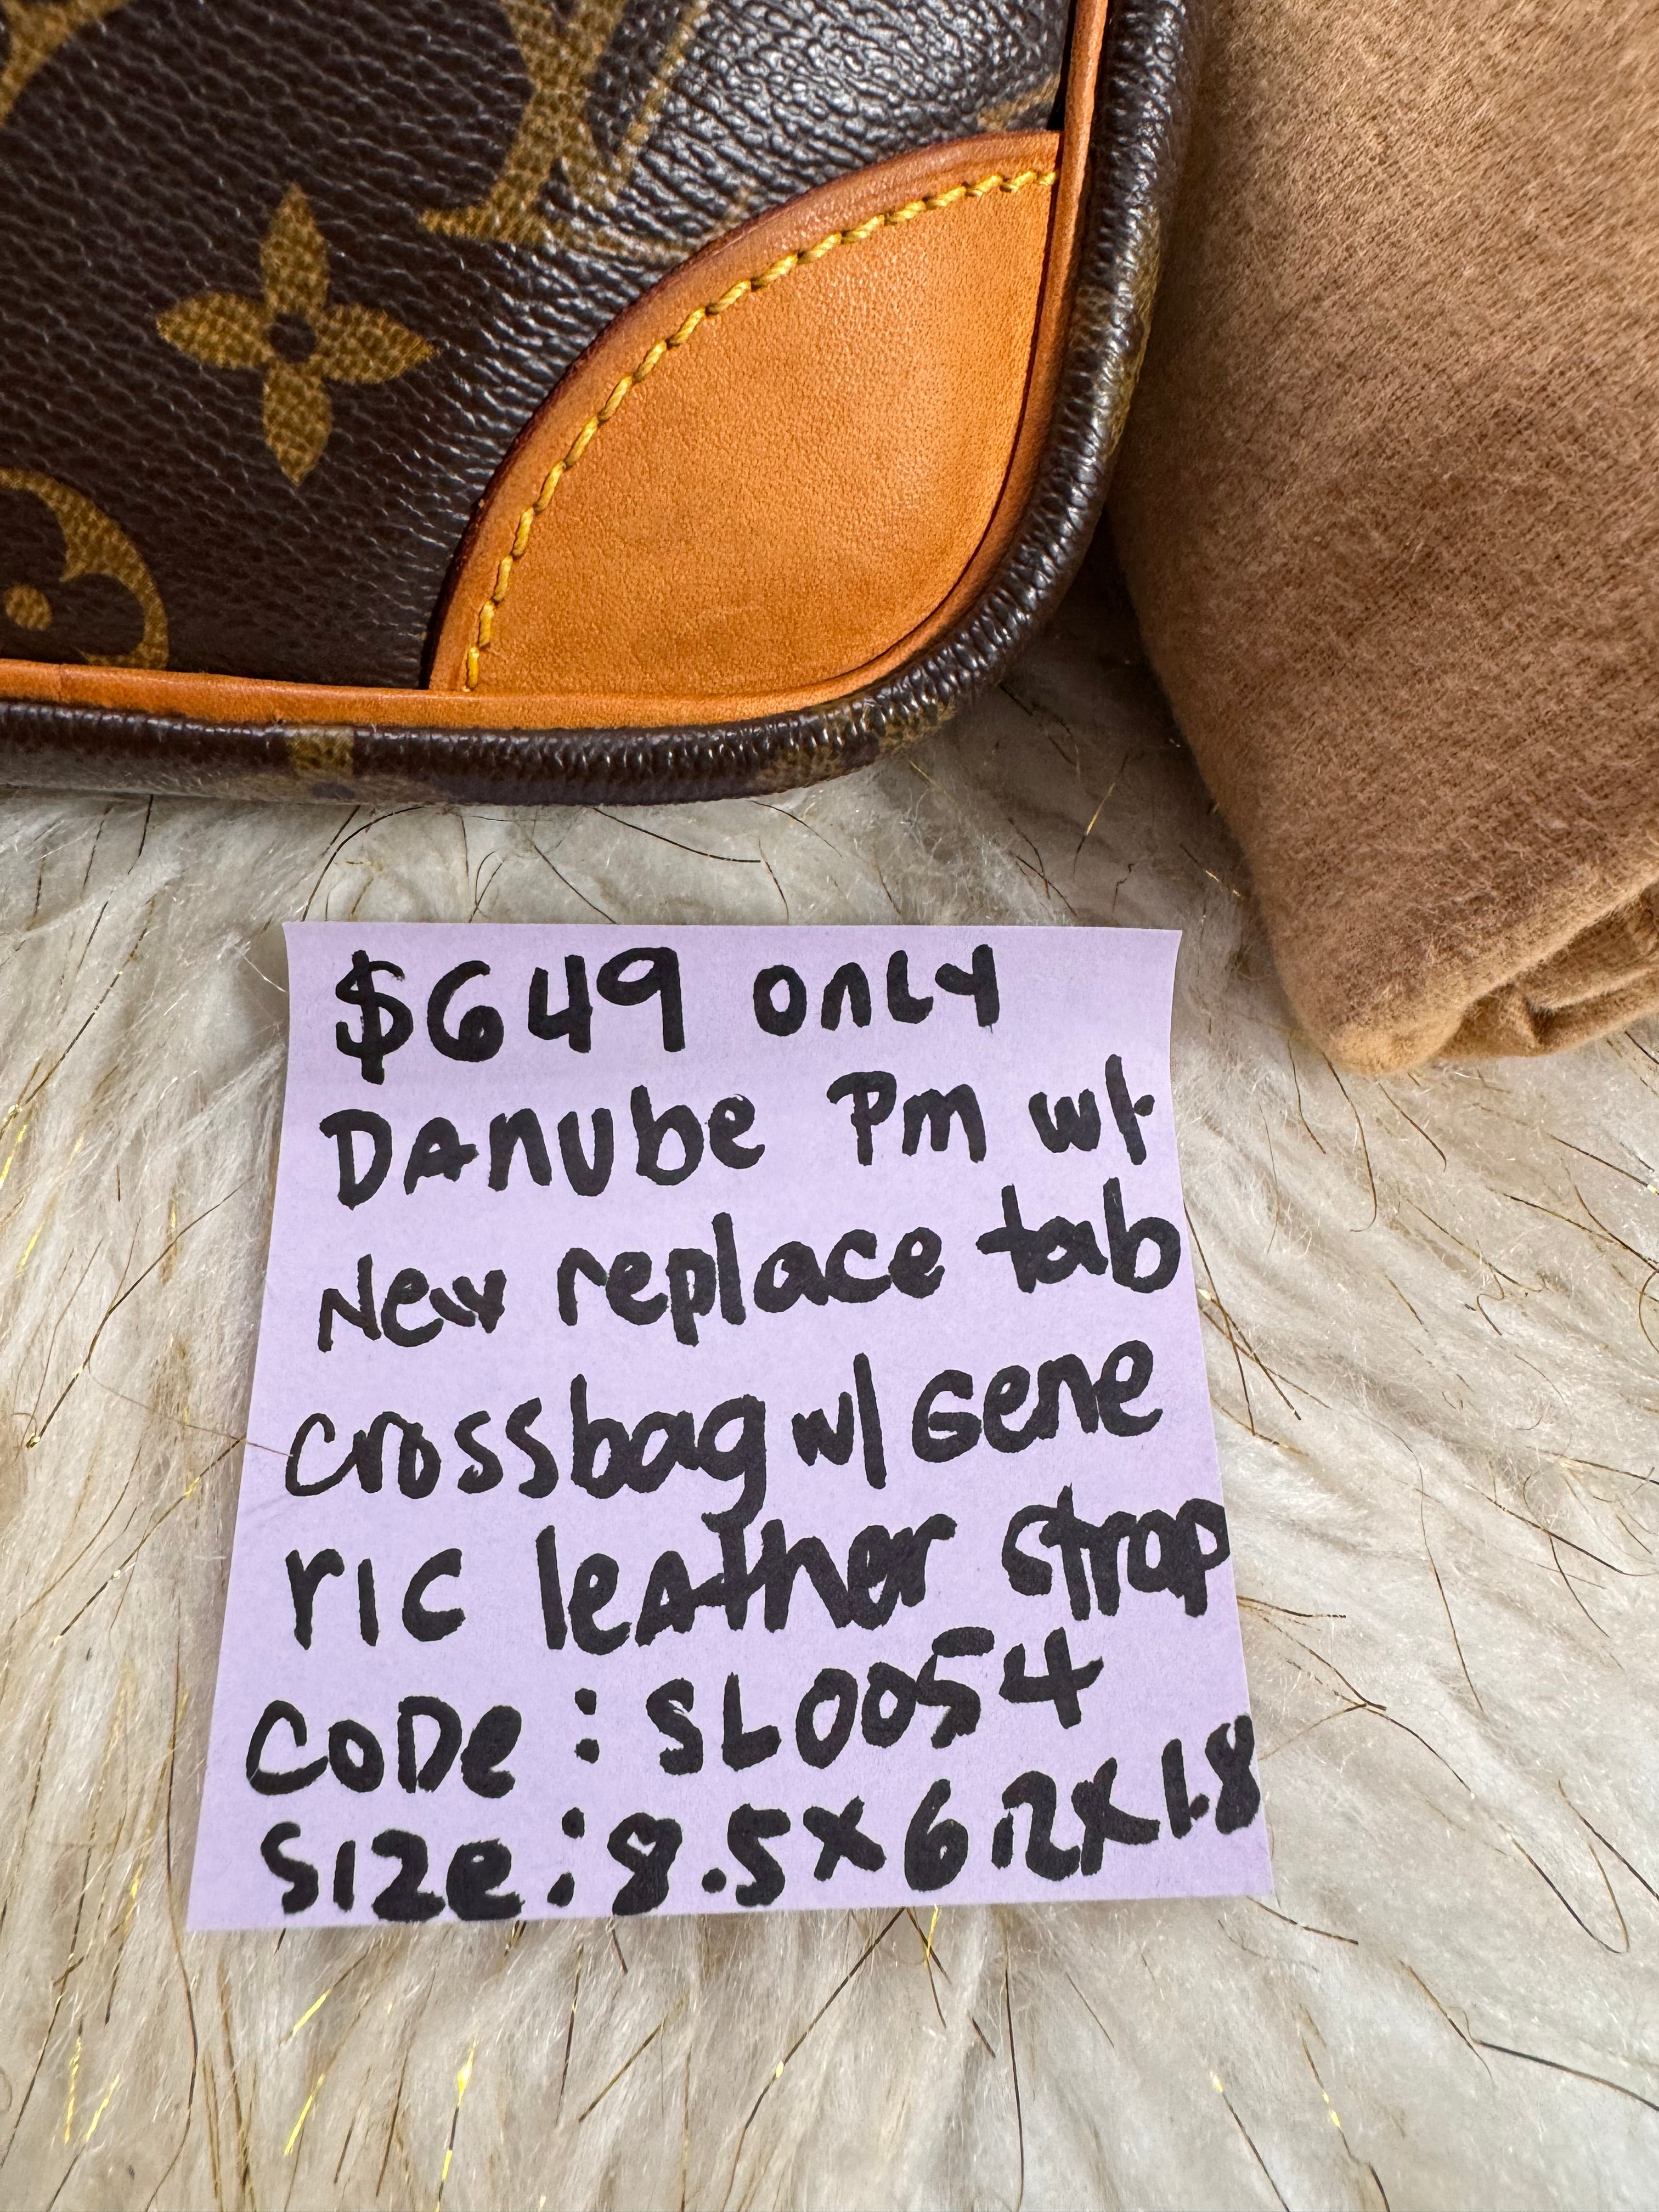 $649 only
DANUbe Pm w/
New replace tab
crossbag w/ Gene
ric leather strap
CODe : SL0054
Size : 8.5 x 6.2 x 1.8